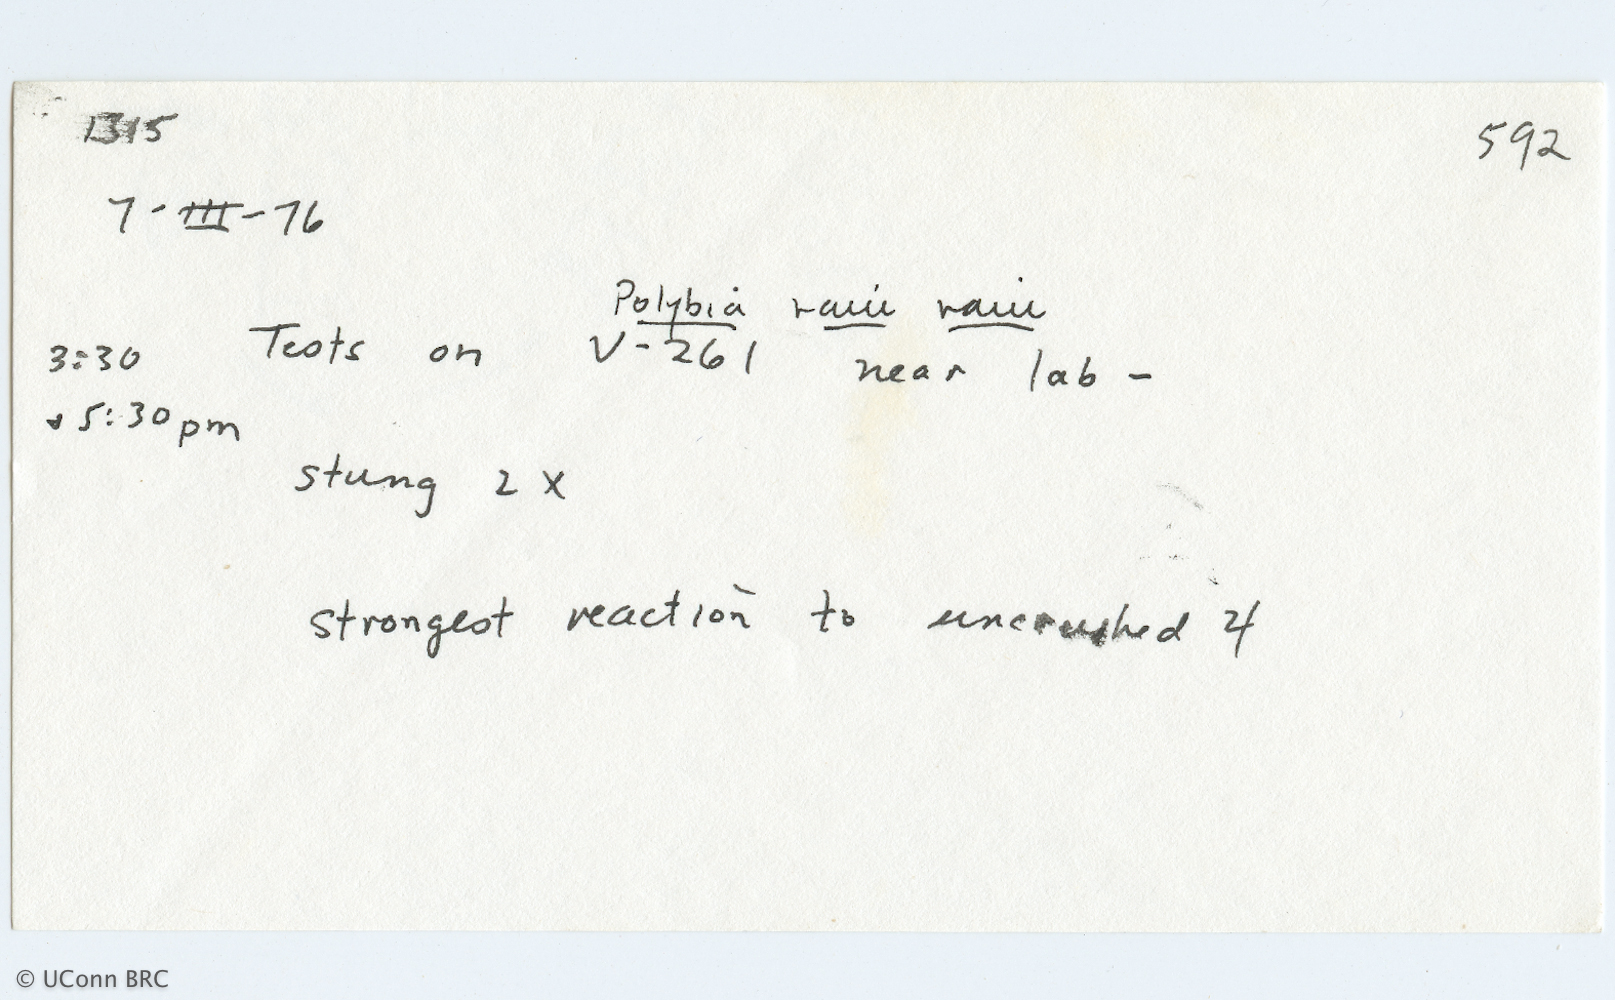 1315
592
7-III-76
Polybia raui raui
3:30 Tests on V-261 near lab -
+ 5:30 pm
stung 2 X
strongest reaction to uncrushed 4
© UConn BRC